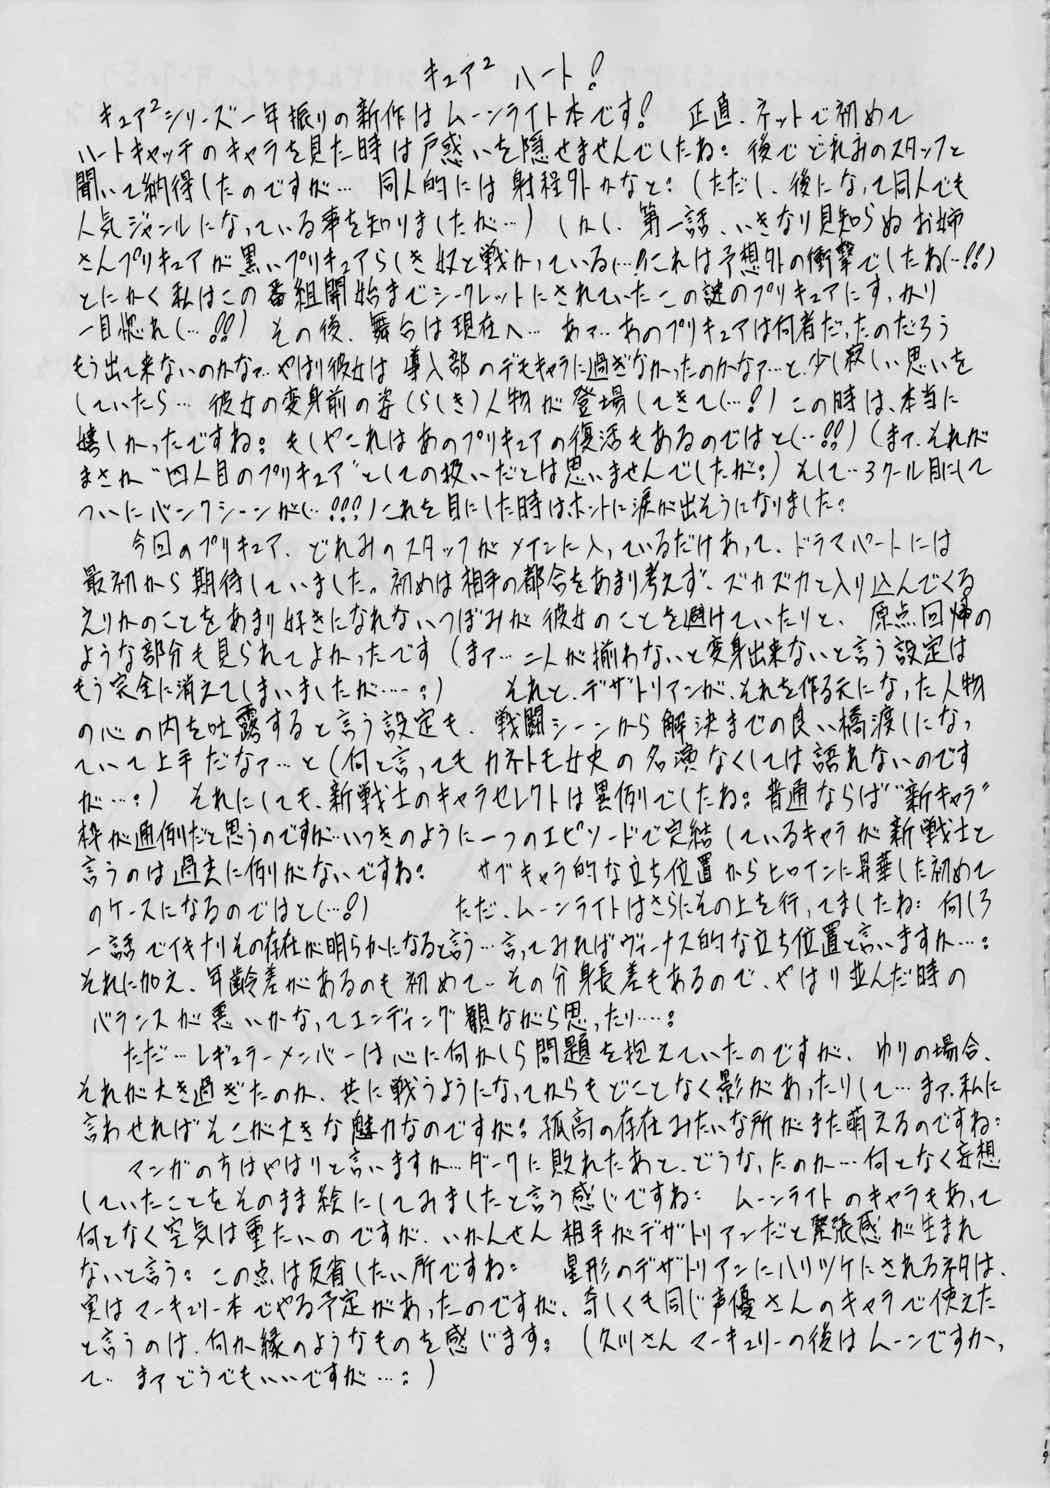 キュア² ハート!
キュア²シリーズ一年振りの新作はムーンライト本です! 正直、ネットで初めて
ハートキャッチのキャラを見た時は戸惑いを隠せませんでしたね: 後でどれみのスタッフと
聞いて納得したのですが… 同人的には射程外かなと:(ただし、後になって同人でも
人気ジャンルになっている事を知りましたが…) しかし、第一話、いきなり見知らぬお姉
さんプリキュアが黒いプリキュアらしき奴と戦かっている(…!)これは予想外の衝撃でしたね(…!!)
とにかく私はこの番組開始までシークレットにされていたこの謎のプリキュアにすっかり
一目惚れ(…!!) その後、舞台は現在へ… あァ…あのプリキュアは何者だったのだろう
もう出て来ないのかなァ…やはり彼女は導入部のデモキャラに過ぎなかったのかなァ…と、少し寂しい思いを
していたら… 彼女の変身前の姿(らしき)人物が登場してきて(…!) この時は、本当に
嬉しかったですね: もしやこれはあのプリキュアの復活もあるのではと(…!!)(まァ、それが
まさか“四人目のプリキュア”としての扱いだとは思いませんでしたが:) そして…3クール目にして
ついにバンクシーンが(…!!!)これを目にした時はホントに涙が出そうになりました:
今回のプリキュア、どれみのスタッフがメインに入っているだけあって、ドラマパートには
最初から期待していました。初めは相手の都合をあまり考えず、ズカズカと入り込んでくる
えりかのことをあまり好きになれないつぼみが彼女のことを避けていたりと、原点回帰の
ような部分も見られてよかったです(まァ…二人が揃わないと変身出来ないと言う設定は
もう完全に消えてしまいましたが…:) それと、デザトリアンが、それを作る元になった人物
の心の内を吐露すると言う設定も、戦闘シーンから解決までの良い橋渡しになっ
ていて上手だなァ…と(何と言ってもカネトモ女史の名演なくしては語れないのです
が…:) それにしても、新戦士のキャラセレクトは異例でしたね: 普通ならば“新キャラ”
枠が通例だと思うのですが…いつきのように一つのエピソードで完結しているキャラが新戦士と
言うのは過去に例がないですね: サブキャラ的な立ち位置からヒロインに昇華した初めて
のケースになるのではと(…!) ただ、ムーンライトはさらにその上を行ってましたね: 何しろ
一話でイキナリその存在が明らかになると言う…言ってみればヴィーナス的な立ち位置と言いますか…:
それに加え、年齢差があるのも初めて…その分身長差もあるので、やはり並んだ時の
バランスが悪いかなってエンディング観ながら思ったり…:
ただ…レギュラーメンバーは心に何かしら問題を抱えていたのですが、ゆりの場合、
それが大き過ぎたのか、共に戦うようになってからもどことなく影があったりして…まァ、私に
言わせればそこが大きな魅力なのですが: 孤高の存在みたいな所がまた萌えるのですね:
マンガの方はやはりと言いますか…ダークに敗れたあと、どうなったのか…何となく妄想
していたことをそのまま絵にしてみましたと言う感じですね: ムーンライトのキャラもあって
何となく空気は重たいのですが、いかんせん相手がデザトリアンだと緊張感が生まれ
ないと言う: この点は反省したい所ですね: 星形のデザトリアンにハリツケにされるネタは、
実はマーキュリー本でやる予定があったのですが、奇しくも同じ声優さんのキャラで使えた
と言うのは、何か縁のようなものを感じます: (久川さんマーキュリーの後はムーンですかっ
て… まァどうでもいいですが…:)
19